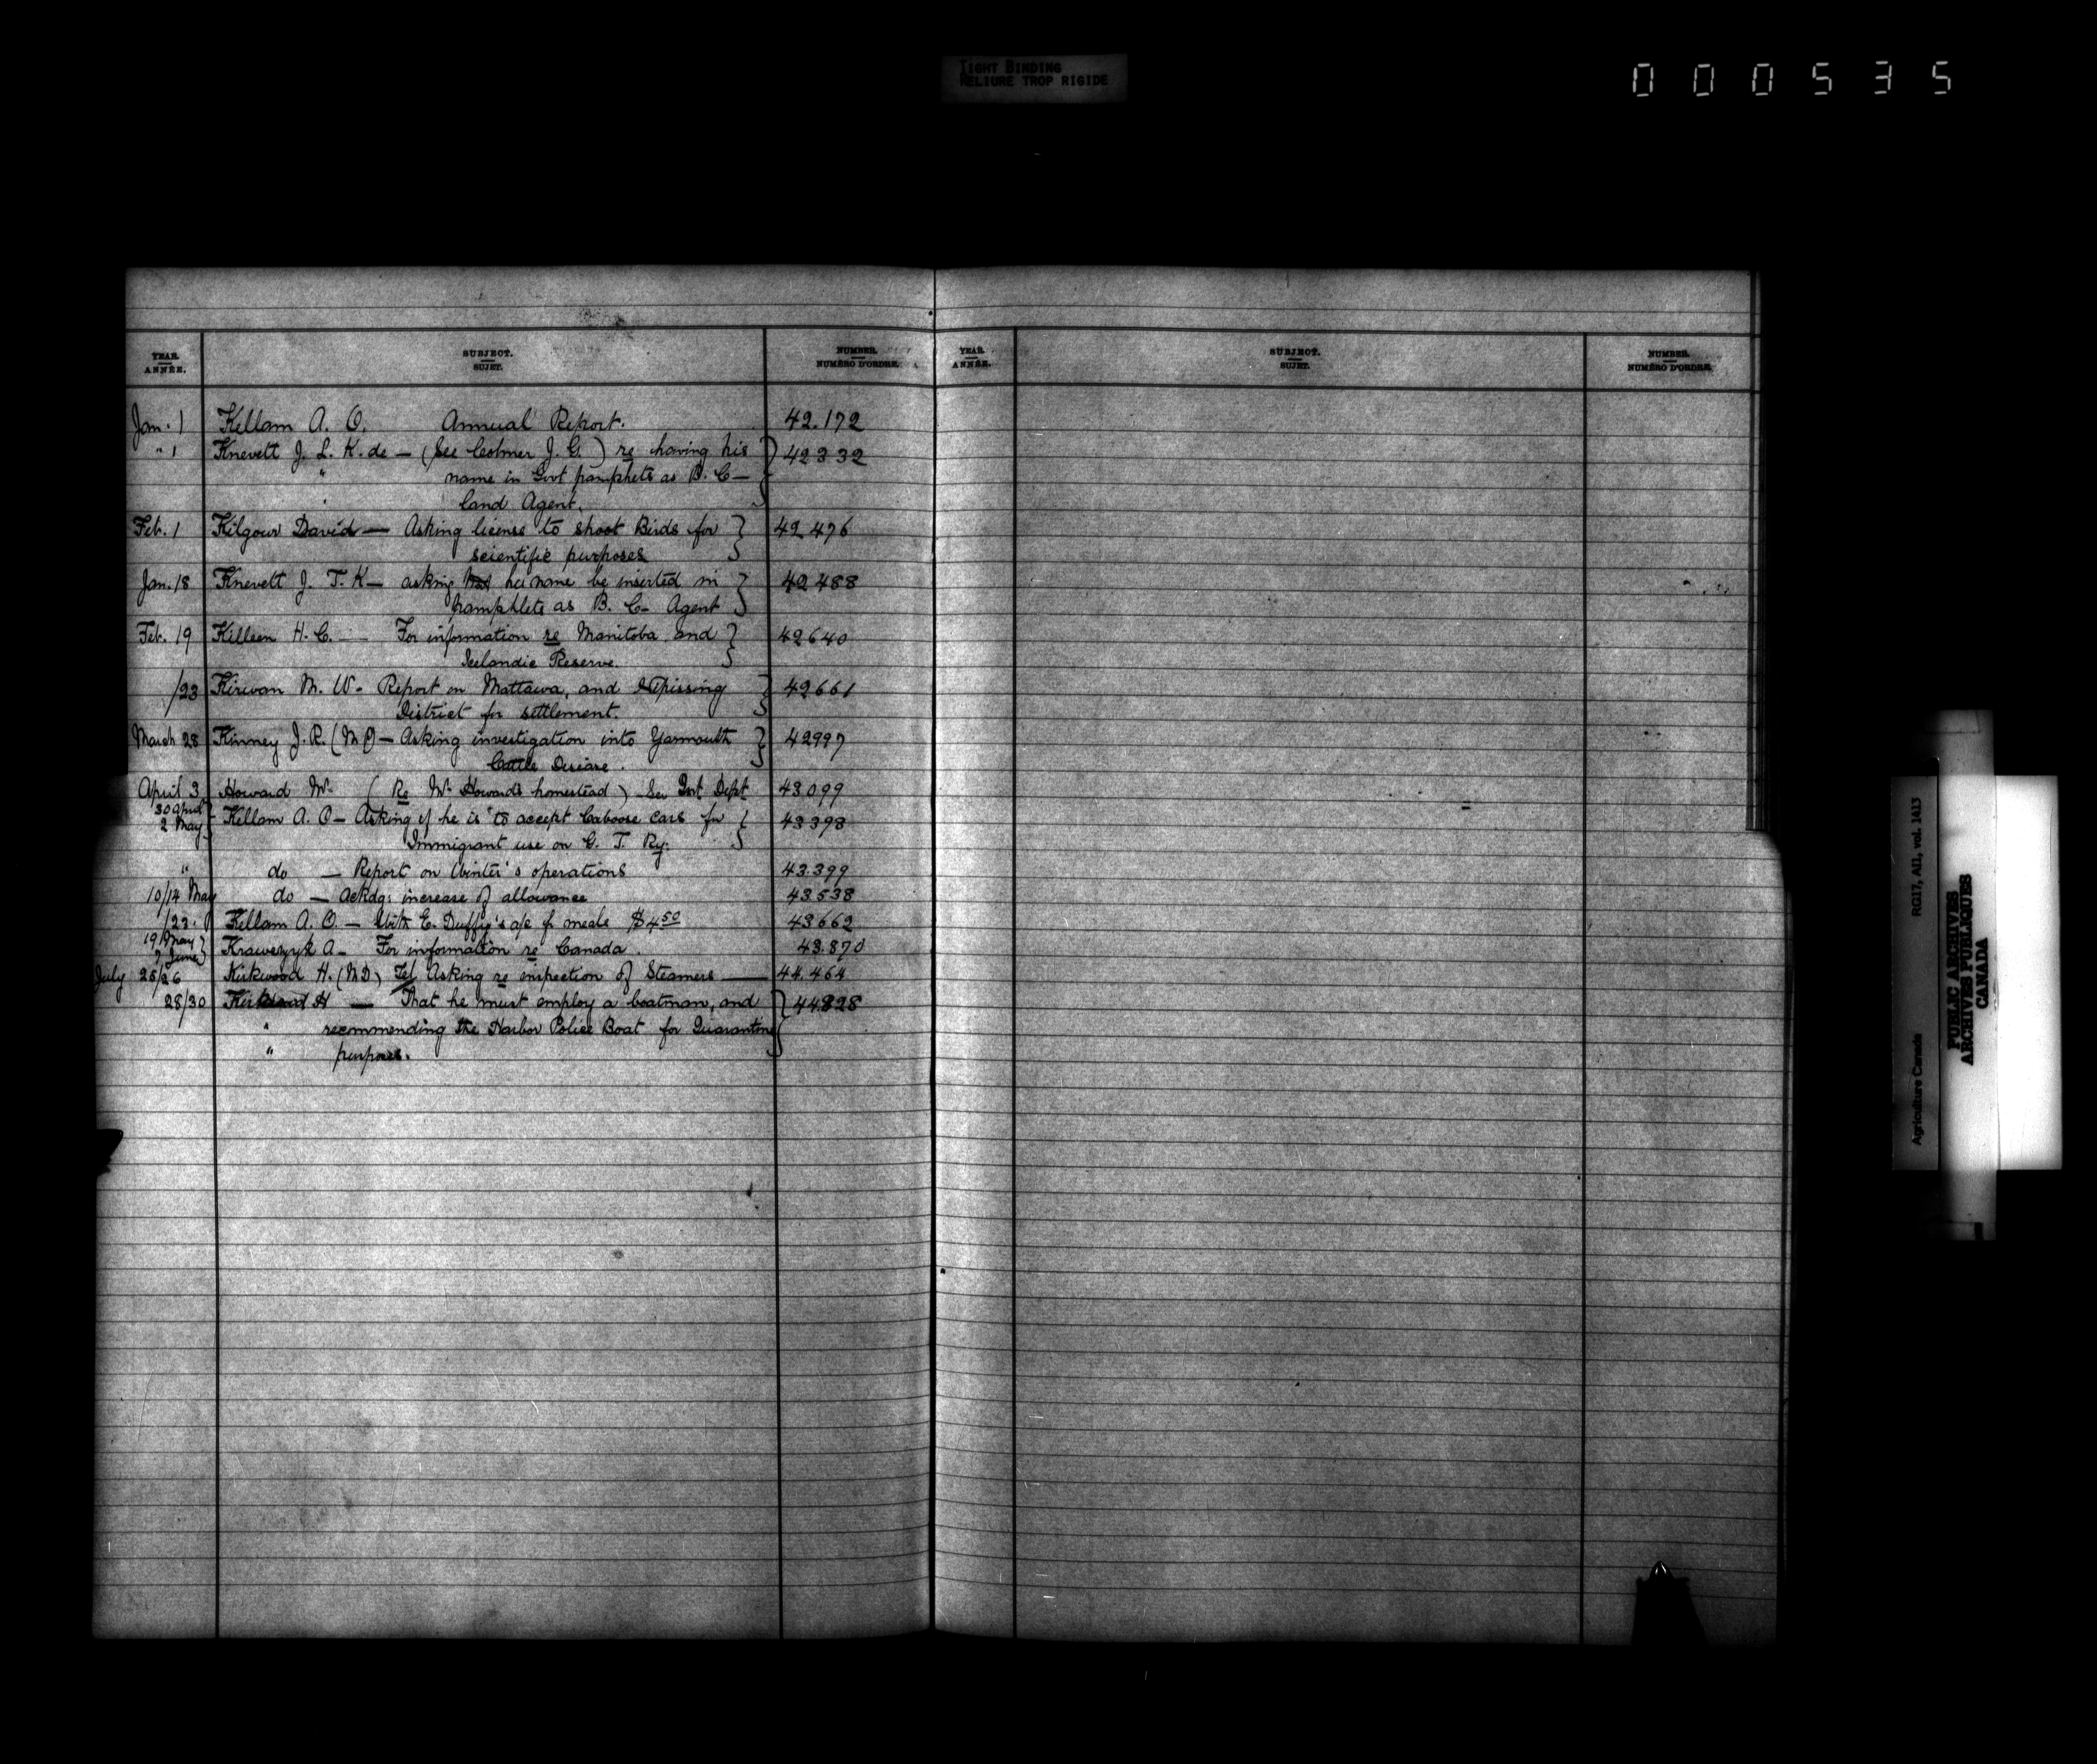 TIGHT BINDING
RELIURE TROP RIGIDE
000535
YEAR. ANNÉE. SUBJECT. SUJET. NUMBER. NUMÉRO D'ORDRE.
YEAR. ANNÉE. SUBJECT. SUJET. NUMBER. NUMÉRO D'ORDRE.
Jan. 1 Kellam A. O. Annual Report. 42.172
" 1 Knevett J. S. K. de — (See Colmer J. G.) re having his 42332
" name in Govt pamphets as B. C —
land Agent.
Feb. 1 Kilgour David — Asking license to shoot Birds for 42476
scientific purposes
Jan. 18 Knevett J. T. K — asking his name be inserted in 42488
pamphlets as B. C— Agent
Feb. 19 Killeen H. C. — For information re Manitoba and 42640
Icelandic Reserve.
/23 Kirwan M. W. Report on Mattawa, and Nipissing 42661
District for settlement.
March 28 Kinney J. R. (MP) — Asking investigation into Yarmouth 42997
Cattle Disease.
April 3 Howard W. (Re W. Howard's homestead) See Int Dept 43099
30 April
2 May Kellam A. O — Asking if he is to accept Caboose cars for 43398
Immigrant use on G. T. Ry.
" do — Report on Winter's operations 43.399
10/14 May do — Ackdg: increase of allowance 43538
/22. Kellam A. O. — With E. Duffy's a/c for meals $4.50 43662
19 May
7 June Krawczyk A — For information re Canada. 43.870
July 25/26 Kirkwood H. (MD) Tel Asking re inspection of Steamers — 44.464
28/30 Kirkwood H — That he must employ a boatman, and 44828
" recommending the Harbor Police Boat for Quarantine
" purposes.
Agriculture Canada RG17, AII, vol. 1413
PUBLIC ARCHIVES
ARCHIVES PUBLIQUES
CANADA